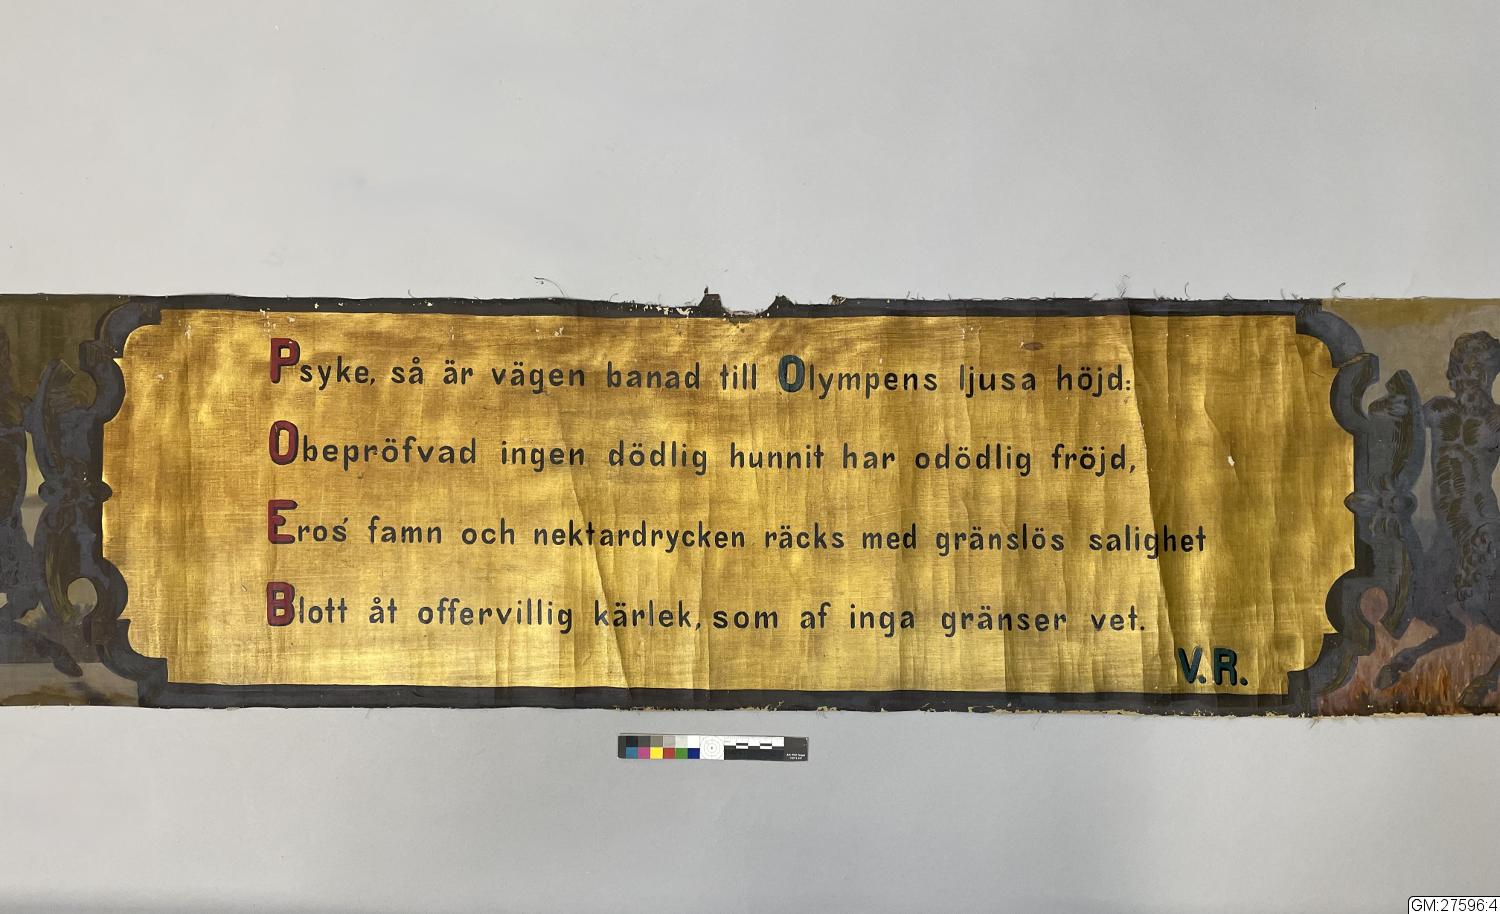 Psyke, så är vägen banad till Olympens ljusa höjd:
Obepröfvad ingen dödlig hunnit har odödlig fröjd,
Eros' famn och nektardrycken räcks med gränslös salighet
Blott åt offervillig kärlek, som af inga gränser vet.
V.R.
GM:27596:4